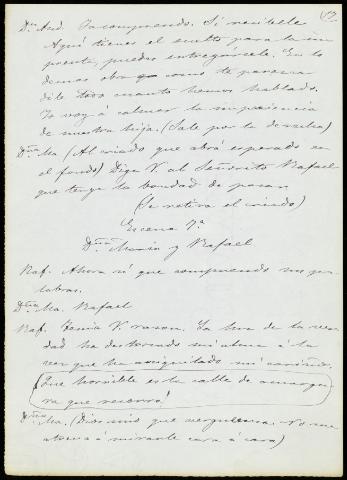 Dn. And. Ya comprendo. Sí recíbele
Aquí tienes el suelto para la im
prenta, puedes entregárselo. En lo
demas obra como te parezca
dile todo cuanto hemos hablado.
Yo voy á calmar la impaciencia
de nuestra hija. (Sale por la derecha)
Dña. Ma. (Al criado que abrá esperado en
el fondo) Diga V. al Señorito Rafael
que tenga la bondad de pasar
(Se retira el criado)
Escena 7ª
Dña. Maria y Rafael
Raf. Ahora sí que comprendo sus pa
labras.
Dña. Ma. Rafael
Raf. Tenia V. razon. La luz de la ver
dad ha destrozado mi alma á la
vez que ha aniquilado mi cariño.
¡Que horrible es la calle de amargu
ra que recorro!
Dña. Ma. (Dios mio que verguenza. No me
atrevo á mirarle cara á cara)